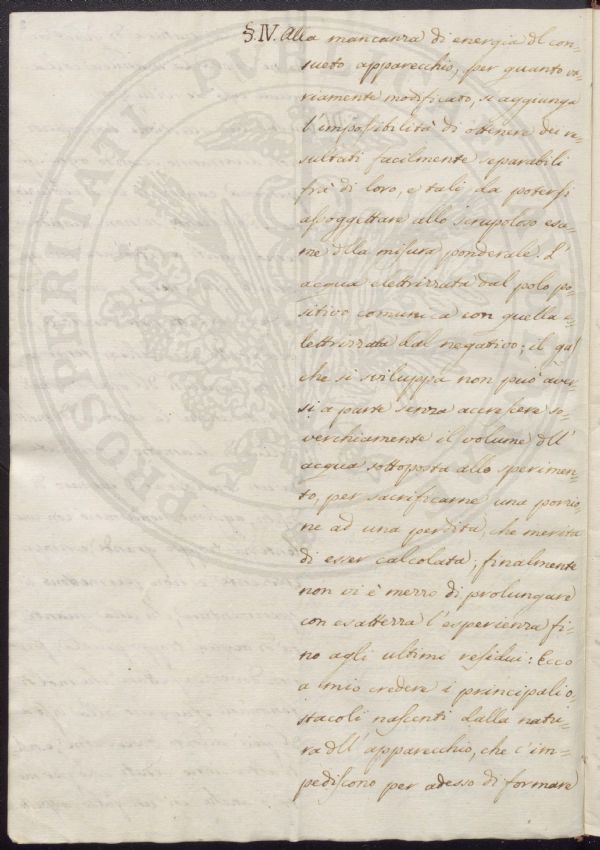 §.IV. Alla mancanza di energia dl con-
sueto apparecchio, per quanto va-
riamente modificato, si aggiunga
l'impossibilità di ottenere dei re-
sultati facilmente separabili
frà di loro, e tali da potersi
assoggettare allo scrupoloso esa-
me dlla misura ponderale. L'
acqua elettrizzata dal polo po-
sitivo comunica con quella e-
lettrizzata dal negativo; il gas
che si sviluppa non può aver-
si a parte senza accrescere so-
verchiamente il volume dll'
acqua sottoposta allo sperimen-
to, per sacrificarne una porzio-
ne ad una perdita, che merita
di esser calcolata; finalmente
non vi è mezzo di prolungare
con esattezza l'esperienza fi-
no agli ultimi residui: Ecco
a mio credere i principali o-
stacoli nascenti dalla natu-
ra dll' apparecchio, che c'im-
pediscono per adesso di formare
PROSPERITATI PUBLICAE